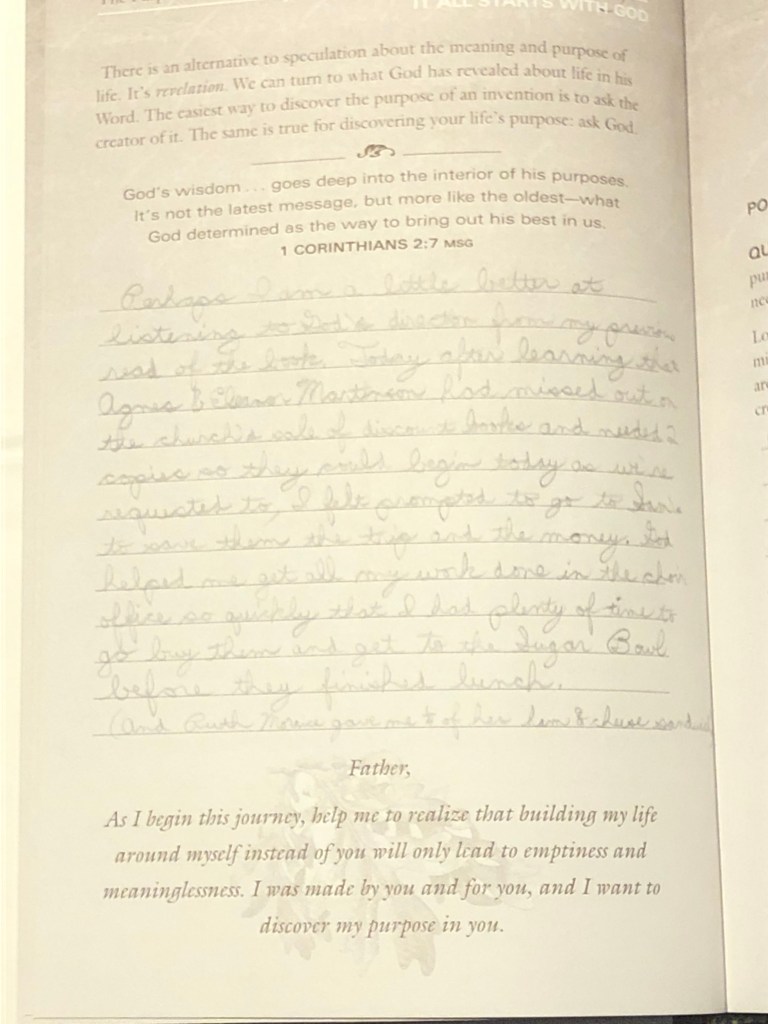 IT ALL STARTS WITH GOD
There is an alternative to speculation about the meaning and purpose of
life. It's revelation. We can turn to what God has revealed about life in his
Word. The easiest way to discover the purpose of an invention is to ask the
creator of it. The same is true for discovering your life's purpose: ask God.
God's wisdom . . . goes deep into the interior of his purposes.
It's not the latest message, but more like the oldest—what
God determined as the way to bring out his best in us.
1 CORINTHIANS 2:7 MSG
Perhaps I am a little better at
listening to God's direction from my
read of the book. Today after learning that
Agnes & Eleanor Martinson had missed out on
the church's sale of discount books and needed 2
copies so they could begin today as we're
requested to, I felt prompted to go to
to save them the trip and the money. God
helped me get all my work done in the
office so quickly that I had plenty of time to
go buy them and get to the Sugar Bowl
before they finished lunch.
(And Ruth gave me ½ of her ham & cheese
Father,
As I begin this journey, help me to realize that building my life
around myself instead of you will only lead to emptiness and
meaninglessness. I was made by you and for you, and I want to
discover my purpose in you.
PO
QU
pu
nee
Lo
mi
are
cr